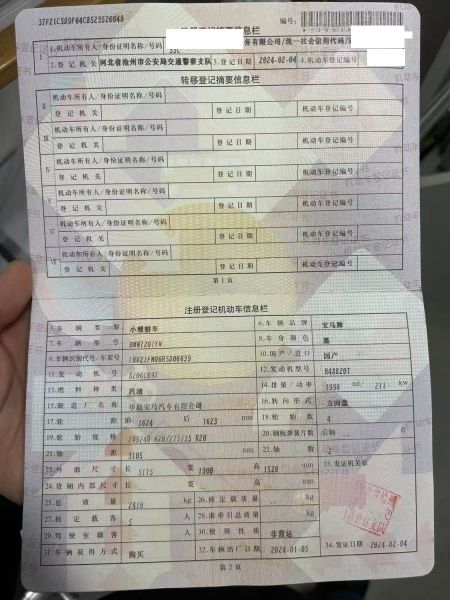 37F21C5D9F64CB523526048 编号:
注册登记摘要信息栏
1.机动车所有人/身份证明名称/号码 务有限公司/统一社会信用代码/
2.登记机关 河北省沧州市公安局交通警察支队 3.登记日期 2024-02-04 4.机动车登记编号
转移登记摘要信息栏
II 机动车所有人/身份证明名称/号码
登记机关 登记日期 机动车登记编号
III 机动车所有人/身份证明名称/号码
登记机关 登记日期 机动车登记编号
IV 机动车所有人/身份证明名称/号码
登记机关 登记日期 机动车登记编号
V 机动车所有人/身份证明名称/号码
登记机关 登记日期 机动车登记编号
VI 机动车所有人/身份证明名称/号码
登记机关 登记日期 机动车登记编号
VII 机动车所有人/身份证明名称/号码
登记机关 登记日期 机动车登记编号
第1页
注册登记机动车信息栏
5.车辆类型 小型轿车 6.车辆品牌 宝马牌
7.车辆型号 8.车身颜色 黑
9.车辆识别代号/车架号 10.国产/进口 国产
11.发动机号 12.发动机型号 B48B20T
13.燃料种类 汽油 14.排量/功率 1998 ml/ 211 kw
15.制造厂名称 华晨宝马汽车有限公司 16.转向形式 方向盘
17.轮距 前 1624 后 1623 mm 18.轮胎数 4
19.轮胎规格 245/40 R20/275/35 R20 20.钢板弹簧片数 后轴 片
21.轴距 3105 mm 22.轴数 2
23.外廓尺寸 长 5175 宽 1900 高 1520 mm 33.发证机关章
24.货厢内部尺寸 长 宽 高 mm
25.总质量 kg 26.核定载质量 kg
27.核定载客 5 人 28.准牵引总质量 kg
29.驾驶室载客 人 30.使用性质 非营运
31.车辆获得方式 购买 32.车辆出厂日期 2024-01-05 34.发证日期 2024-02-04
第2页